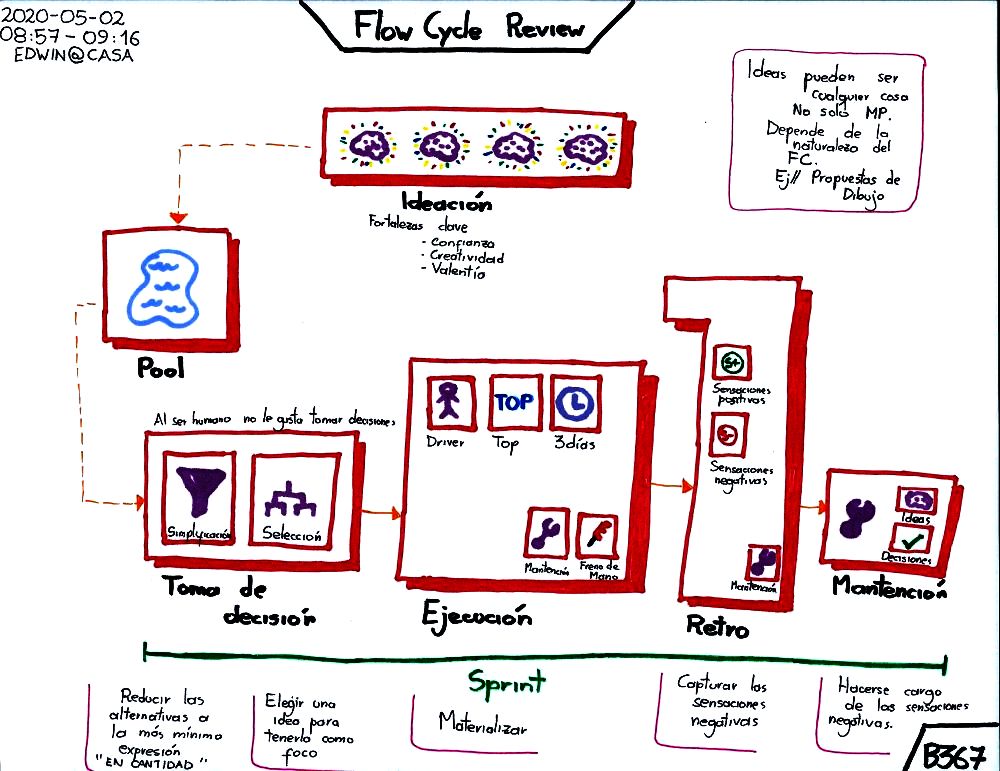 2020-05-02
08:57-09:16
EDWIN@CASA
Flow Cycle Review
Ideas pueden ser
cualquier cosa
No solo MP.
Depende de la
naturaleza del
FC.
Ej// Propuestas de
Dibujo
Ideación
Fortalezas clave
- Confianza
- Creatividad
- Valentía
Pool
Al ser humano no le gusta tomar decisiones
Simplificación
Selección
Toma de
decisión
TOP
Driver
Top
3 días
Mantención
Freno de
Mano
Ejecución
S+
Sensaciones
positivas
S-
Sensaciones
negativas
Mantención
Retro
Ideas
Decisiones
Mantención
Sprint
Reducir las
alternativas a
la más mínimo
expresión
"EN CANTIDAD"
Elegir una
idea para
tenerla como
foco
Materializar
Capturar las
sensaciones
negativas
Hacerse cargo
de las sensaciones
negativas.
B367